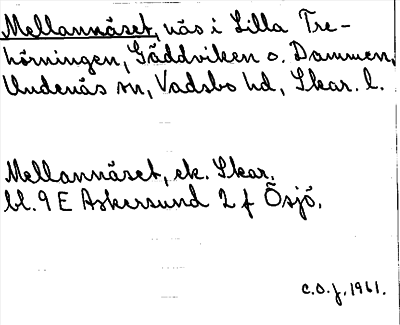 Mellannäset, näs i Lilla Tre-
hörningen, Gäddviken o. Dammen,
Undenäs sn, Vadsbo hd, Skar. l.
Mellannäset, ek. Skar.
bl. 9 E Askersund 2 f Ösjö.
C.O.J. 1961.